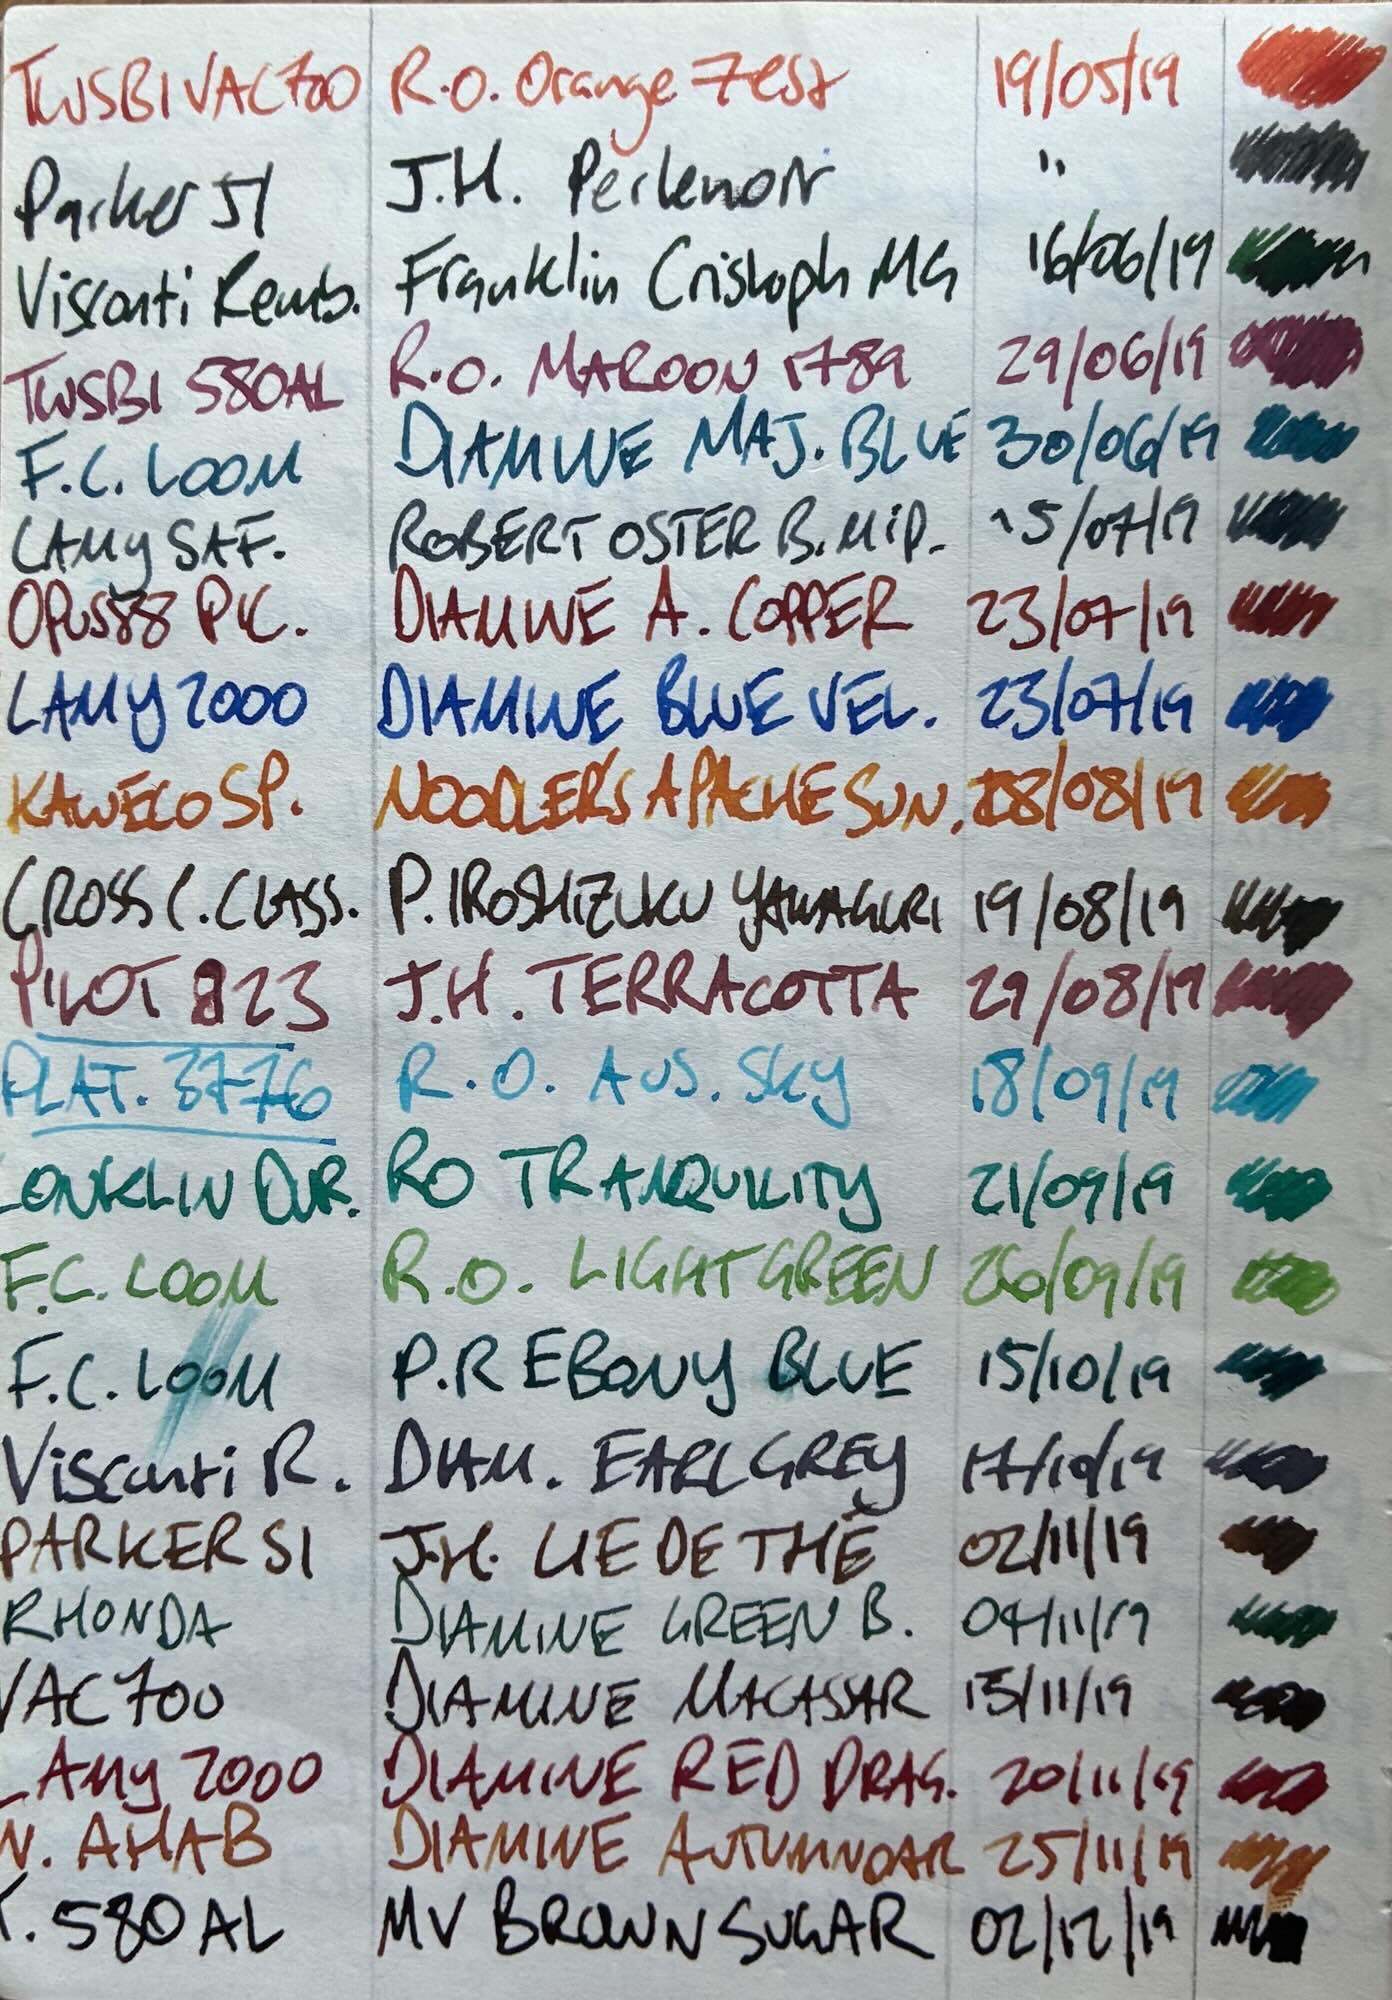 TWSBI VAC 700 R.O. Orange Zest 19/05/19
Parker 51 J.H. Perlenoir "
Visconti Remb. Franklin Cristoph MG 16/06/19
TWSBI 580AL R.O. MAROON 1789 29/06/19
F.C. LOOM DIAMINE MAJ. BLUE 30/06/19
LAMY SAF. ROBERT OSTER B. MID. 15/07/19
OPUS88 PIC. DIAMINE A. COPPER 23/07/19
LAMY 2000 DIAMINE BLUE VEL. 23/07/19
KAWECO SP. NOODLER'S APACHE SUN. 18/08/19
CROSS C. CLASS. P. IROSHIZUKU YAMAGURI 19/08/19
PILOT 823 J.H. TERRACOTTA 29/08/19
PLAT. 3776 R.O. AUS. SKY 18/09/19
CONKLIN DUR. RO TRANQUILITY 21/09/19
F.C. LOOM R.O. LIGHT GREEN 26/09/19
F.C. LOOM P.R EBONY BLUE 15/10/19
Visconti R. DIAM. EARL GREY 17/10/19
PARKER 51 J.H. LIE DE THÉ 02/11/19
RHONDA DIAMINE GREEN B. 04/11/19
VAC 700 DIAMINE MACASSAR 13/11/19
LAMY 2000 DIAMINE RED DRAG. 20/11/19
N. AHAB DIAMINE AUTUMNOAK 25/11/19
T. 580 AL MV BROWN SUGAR 02/12/19